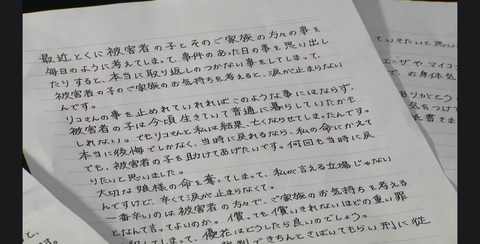 最近とくに被害者の子とそのご家族の方々の事を
毎日のように考えてしまって、事件のあった日の事を思い出し
たりすると、本当に取り返しのつかない事をしてしまって、
被害者の子のご家族のお気持ちを考えると、涙が止まらない
んです。
リコさんの事を止めれていればこのような事にはならず、
被害者の子は今頃生きていて普通に暮らしていたかも
しれない。でもリコさんと私は結果、亡くならせてしまったんです。
本当に後悔でしかなく、当時に戻れるなら、私の命にかえて
でも、被害者の子を助けてあげたいです。何回も当時に戻
りたいと思いました。
大切な娘様の命を奪ってしまって、私が言える立場じゃない
んですけど、辛くて涙が止まらなくて。
一番辛いのは被害者の方々で、ご家族のお気持ちを考える
となんて言ってよいのか。償っても償いきれないほどの重い罪
してしまって、優花はどうしたら良いのでしょう。
できちんとさばいてもらい刑に従
ていきたいと思い
エンザやマイコ
で、お身体気
ありがとう
気をつけて